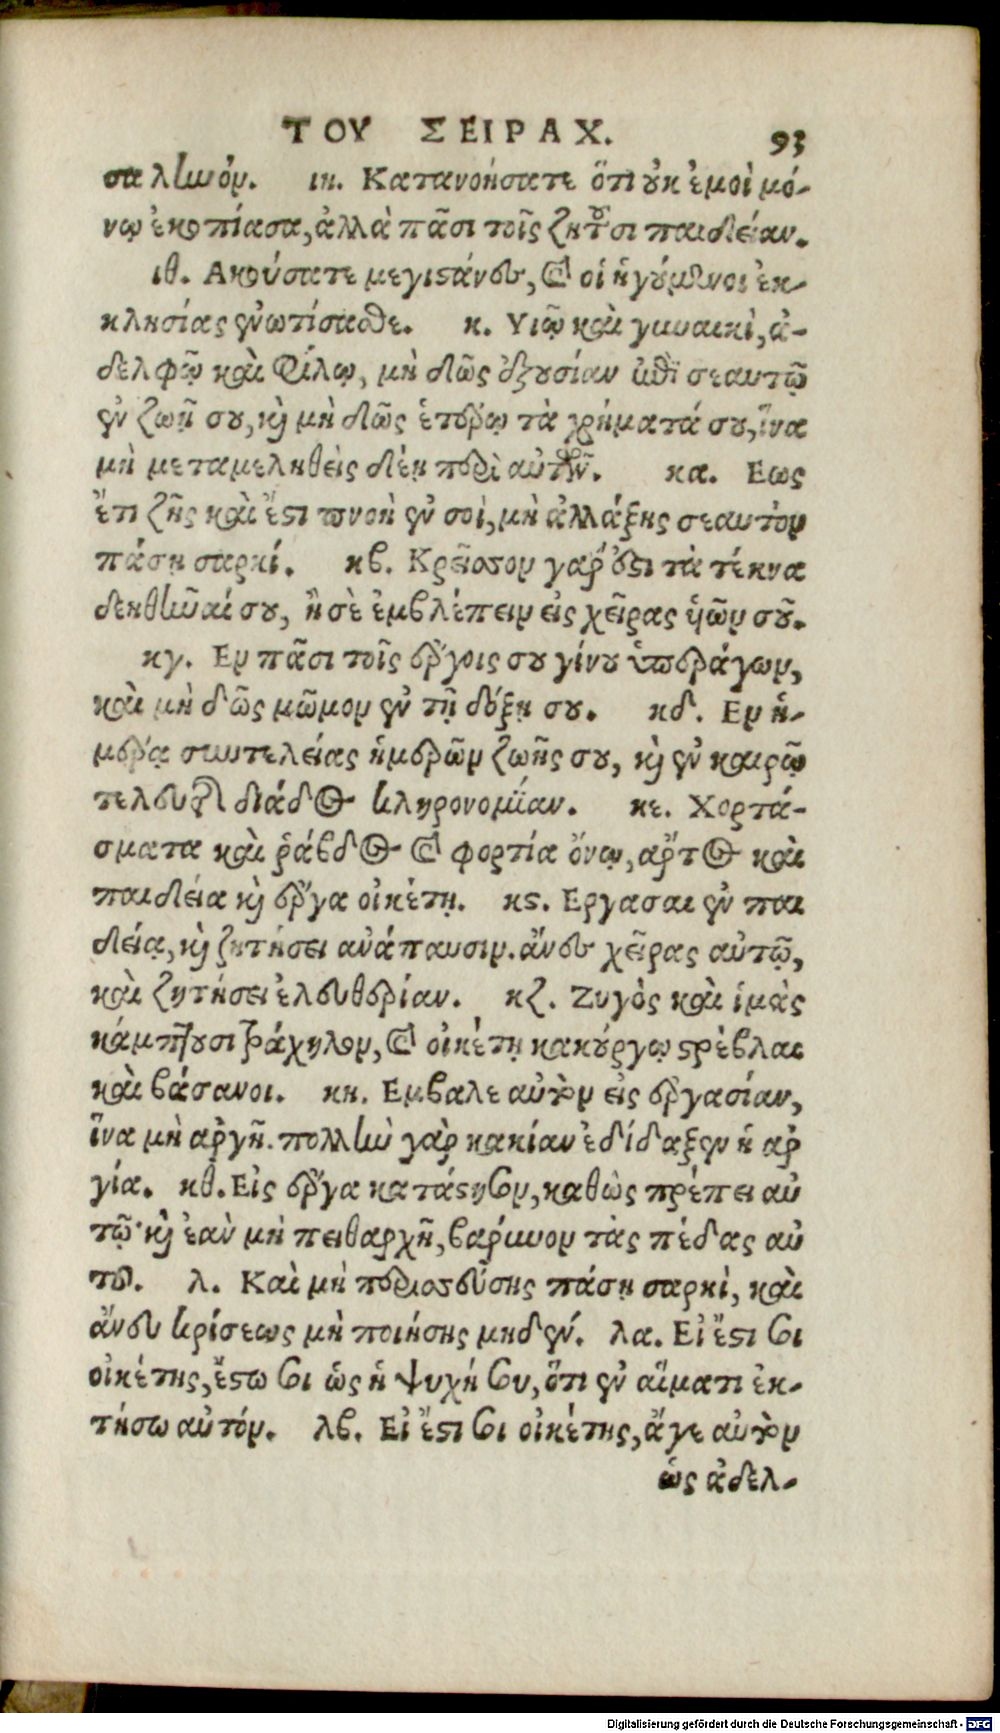 ΤΟΥ ΣΕΙΡΑΧ. 93
σα ληνόν. ιη. Κατανοήσατε ὅτι οὐκ ἐμοὶ μό-
νῳ ἐκοπίασα, ἀλλὰ πᾶσι τοῖς ζητοῦσι παιδείαν.
ιθ. Ακούσατε μεγιστάνες, καὶ οἱ ἡγούμενοι ἐκ-
κλησίας ἐνωτίσασθε. κ. Υιῷ καὶ γυναικὶ, ἀ-
δελφῷ καὶ φίλῳ, μὴ δῶς ἐξουσίαν ἐπὶ σεαυτῷ
ἐν ζωῇ σου, καὶ μὴ δῶς ἑτέρῳ τὰ χρήματά σου, ἵνα
μὴ μεταμεληθεὶς δέῃ περὶ αὐτῶν. κα. Εως
ἔτι ζῇς καὶ ἔστι πνοὴ ἐν σοὶ, μὴ ἀλλάξῃς σεαυτὸν
πάσῃ σαρκί. κβ. Κρεῖσσον γάρ ἐστι τὰ τέκνα
δεηθῆναί σου, ἢ σὲ ἐμβλέπειν εἰς χεῖρας ὑῶν σοῦ.
κγ. Εν πᾶσι τοῖς ἔργοις σου γίνου ὑπεράγων,
καὶ μὴ δῶς μῶμον ἐν τῇ δόξῃ σου. κδ. Εν ἡ-
μέρᾳ συντελείας ἡμερῶν ζωῆς σου, καὶ ἐν καιρῷ
τελευτῆς διάδος κληρονομίαν. κε. Χορτά-
σματα καὶ ῥάβδος καὶ φορτία ὄνῳ, ἄρτος καὶ
παιδεία καὶ ἔργα οἰκέτῃ. κς. Εργασαι ἐν παι
δείᾳ, καὶ ζητήσει ἀνάπαυσιν. ἄνες χεῖρας αὐτῷ,
καὶ ζητήσει ἐλευθερίαν. κζ. Ζυγὸς καὶ ἱμὰς
κάμπτουσι τράχηλον, καὶ οἰκέτῃ κακούργῳ στρέβλαι
καὶ βάσανοι. κη. Εμβαλε αὐτὸν εἰς ἐργασίαν,
ἵνα μὴ ἀργῇ. πολλὴν γὰρ κακίαν ἐδίδαξεν ἡ ἀρ
γία. κθ. Εἰς ἔργα κατάστησον, καθὼς πρέπει αὐ
τῷ· καὶ ἐὰν μὴ πειθαρχῇ, βάρυνον τὰς πέδας αὐ
τοῦ. λ. Καὶ μὴ περισσεύσῃς πάσῃ σαρκὶ, καὶ
ἄνευ κρίσεως μὴ ποιήσῃς μηδέν. λα. Εἰ ἔστι σοι
οἰκέτης, ἔστω σοι ὡς ἡ ψυχή σου, ὅτι ἐν αἵματι ἐκ-
τήσω αὐτόν. λβ. Εἰ ἔστι σοι οἰκέτης, ἄγε αὐτὸν
ὡς ἀδελ-
Digitalisierung gefördert durch die Deutsche Forschungsgemeinschaft - DFG